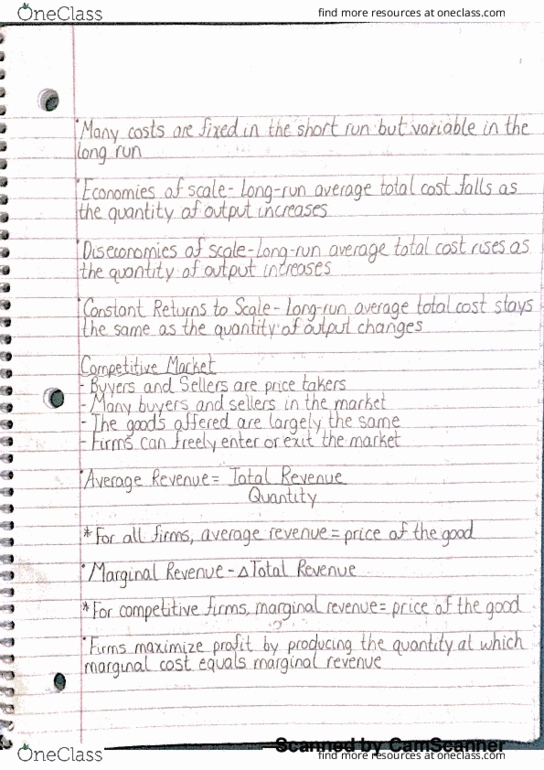 OneClass
find more resources at oneclass.com
•Many costs are fixed in the short run but variable in the
long run
•Economies of scale- long-run average total cost falls as
the quantity of output increases
•Diseconomies of scale-long-run average total cost rises as
the quantity of output increases
•Constant Returns to Scale- long-run average total cost stays
the same as the quantity of output changes
Competitive Market
- Buyers and Sellers are price takers
- Many buyers and sellers in the market
- The goods offered are largely the same
- Firms can freely enter or exit the market
•Average Revenue = Total Revenue
Quantity
*For all firms, average revenue = price of the good
•Marginal Revenue - ΔTotal Revenue
*For competitive firms, marginal revenue = price of the good
•Firms maximize profit by producing the quantity at which
marginal cost equals marginal revenue
Scanned by CamScanner
OneClass
find more resources at oneclass.com